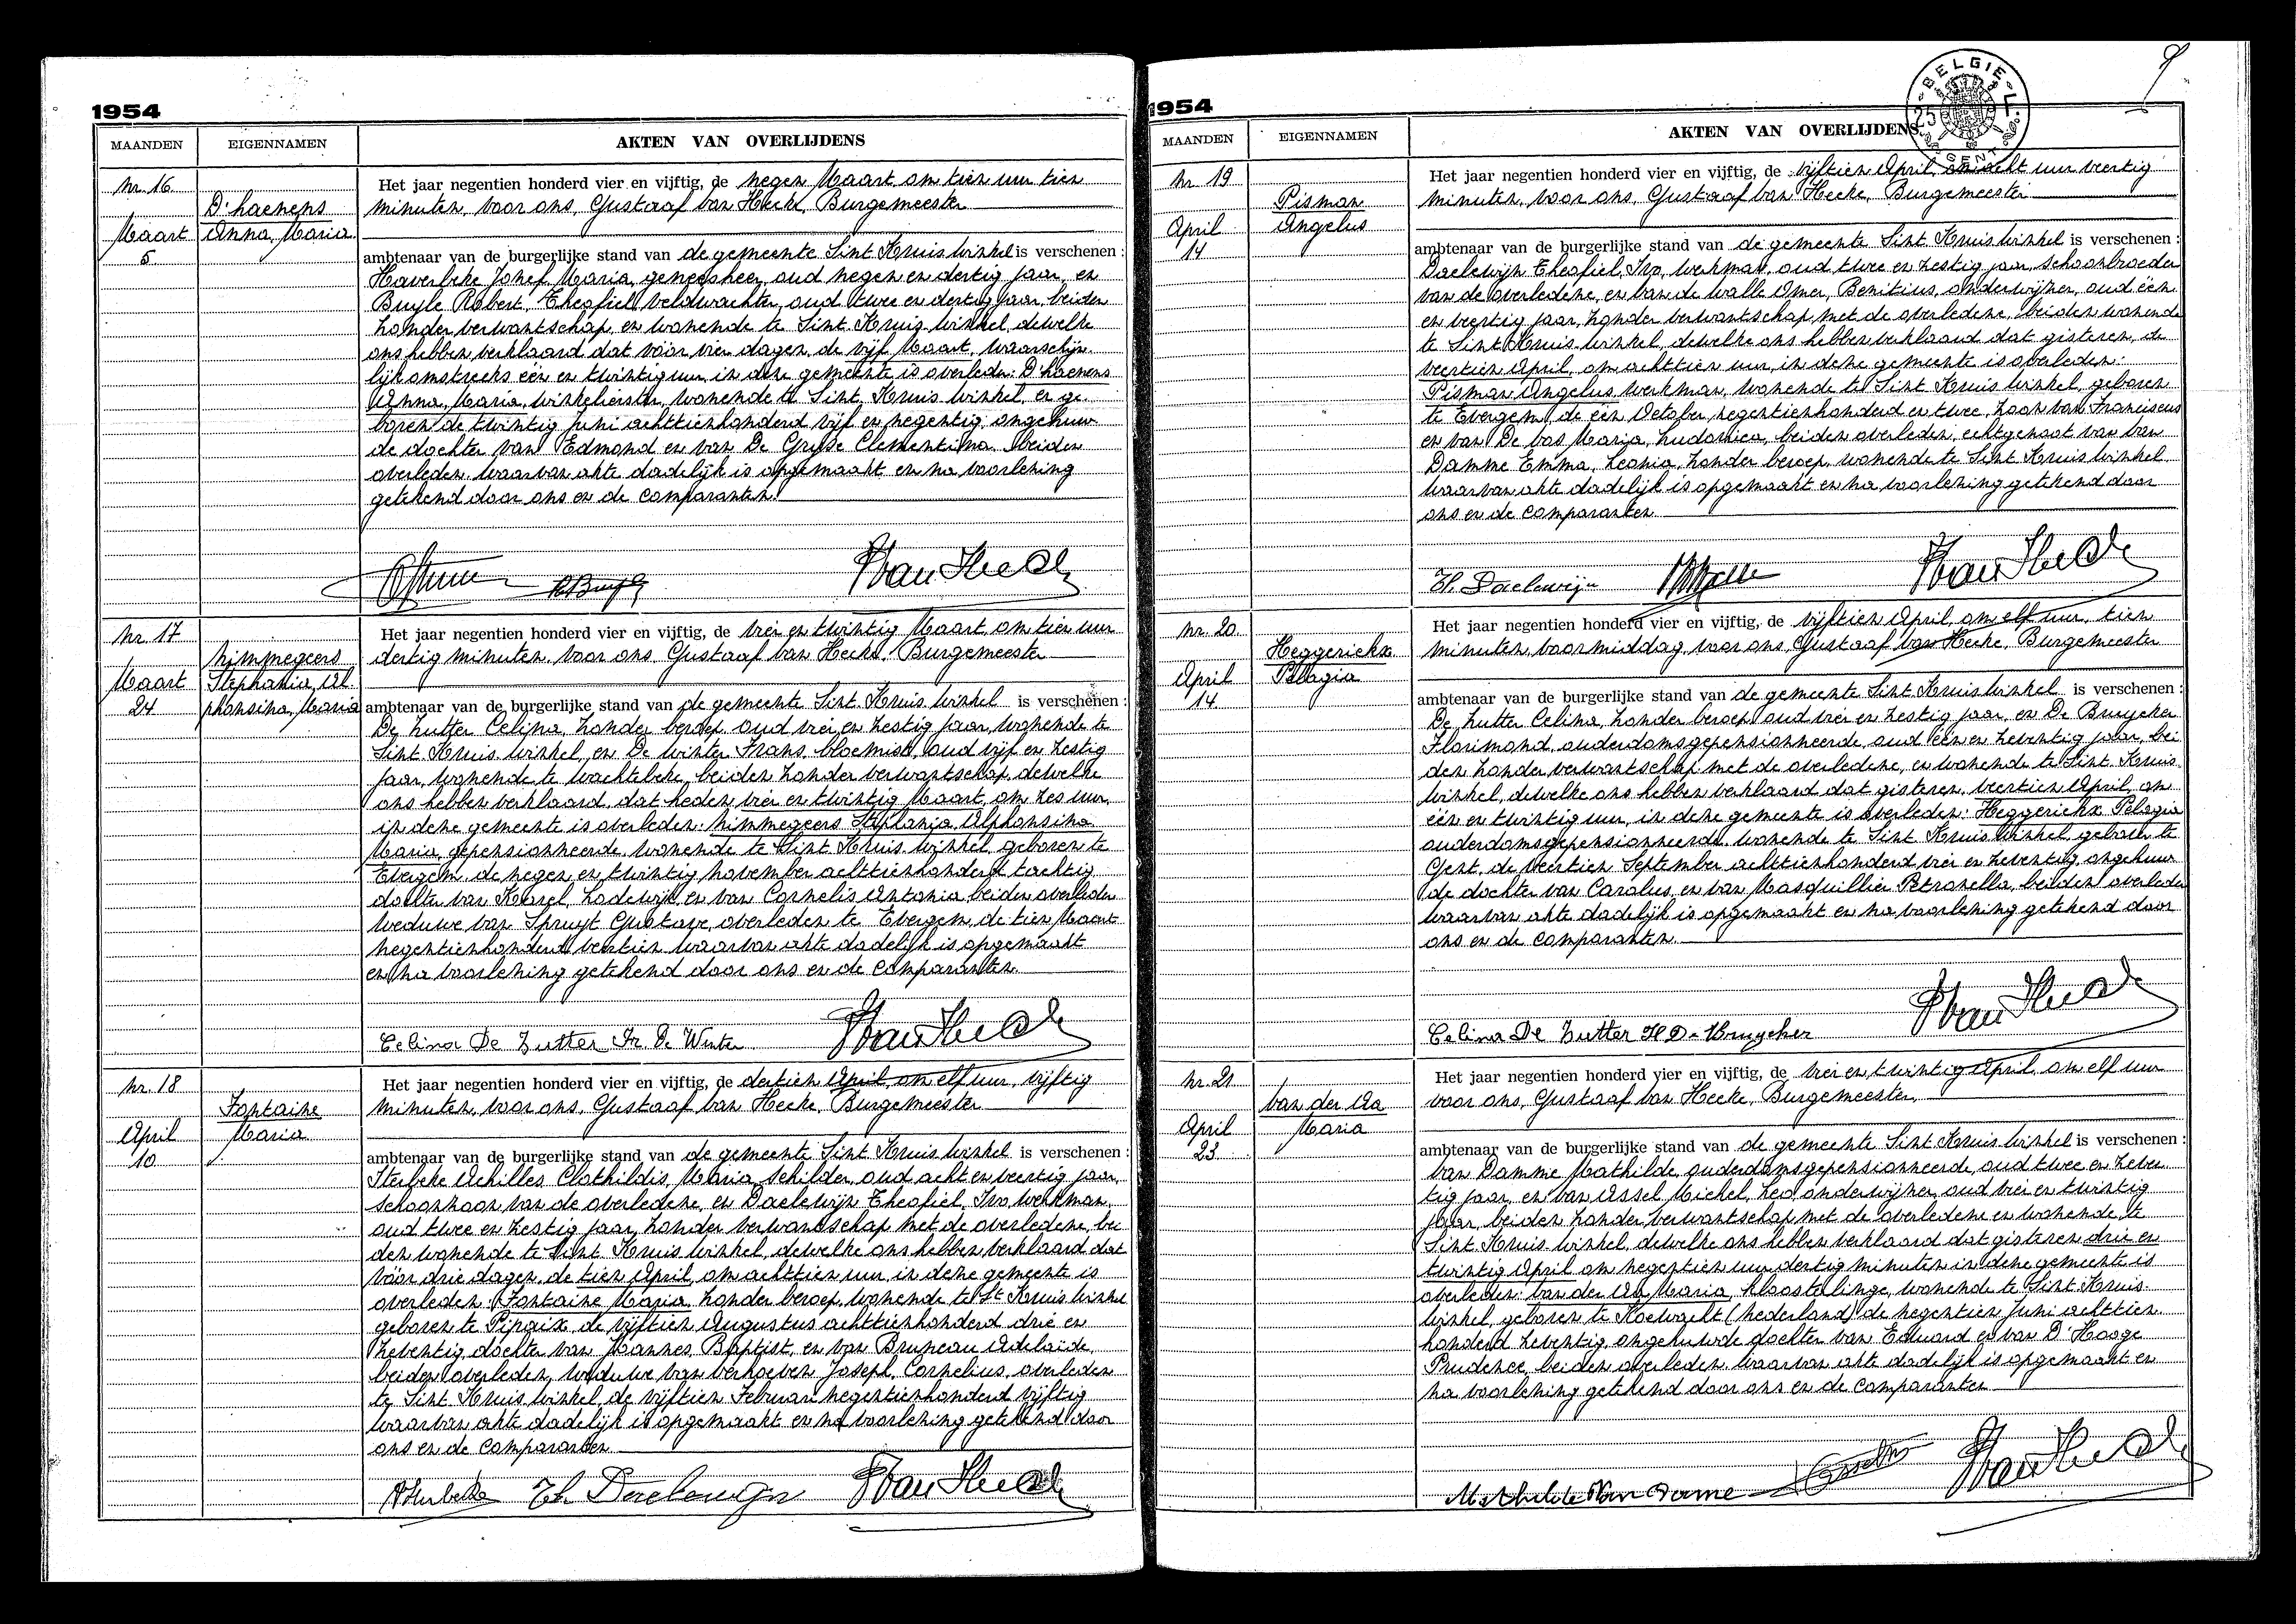 1954
MAANDEN
EIGENNAMEN
AKTEN VAN OVERLIJDENS
Nr. 16
D'haenens
Anna, Maria
Maart
5
Het jaar negentien honderd vier en vijftig, de negen Maart om tien uur tien
minuten, voor ons, Gustaaf van Hecke, Burgemeester
ambtenaar van de burgerlijke stand van de gemeente Sint Kruis Winkel is verschenen :
Haverbeke Jozef Maria, geneesheer, oud negen en dertig jaar, en
Buyle Robert, Theofiel, veldwachter, oud twee en dertig jaar, beiden
zonder verwantschap, en wonende te Sint Kruis Winkel, dewelke
ons hebben verklaard dat vóór vier dagen, de vijf Maart, waarschijn-
lijk omstreeks één en twintig uur, in deze gemeente is overleden: D'haenens
Anna, Maria, winkelierster, wonende te Sint Kruis Winkel, en ge-
boren de twintig Juni achttienhonderd vijf en negentig, ongehuw-
de dochter van Edmond en van De Gryse Clementina beiden
overleden. waarvan akte dadelijk is opgemaakt en na voorlezing
getekend door ons en de comparanten.
R Buyle
Van Hecke
Nr. 17
Nimmegeers
Stephania, Al-
phonsina, Maria
Maart
24
Het jaar negentien honderd vier en vijftig, de vier en twintig Maart om tien uur
dertig minuten, voor ons Gustaaf van Hecke, Burgemeester
ambtenaar van de burgerlijke stand van de gemeente Sint Kruis Winkel is verschenen :
De Zutter Celina, zonder beroep, oud vier en zestig jaar, wonende te
Sint Kruis Winkel, en De Winter Frans, bloemist, oud vijf en zestig
jaar, wonende te Wachtebeke, beiden zonder verwantschap, dewelke
ons hebben verklaard, dat heden vier en twintig Maart, om zes uur,
in deze gemeente is overleden: Nimmegeers Stephania, Alphonsina
Maria, gepensionneerde, wonende te Sint Kruis Winkel, geboren te
Evergem, de negen en twintig November achttienhonderd tachtig
dochter van Karel, Lodewijk, en van Cornelis Antonia, beiden overleden
weduwe van Spruyt Gustave, overleden te Evergem, de tien Maart
negentienhonderd veertien, waarvan akte dadelijk is opgemaakt
en na voorlezing getekend door ons en de comparanten.
Celina De Zutter Fr. De Winter
Van Hecke
Nr. 18
Fontaine
Maria
April
10
Het jaar negentien honderd vier en vijftig, de dertien April, om elf uur, vijftig
minuten, voor ons, Gustaaf van Hecke, Burgemeester
ambtenaar van de burgerlijke stand van de gemeente Sint Kruis Winkel is verschenen :
Sterbeke Achilles Clothildis, Maria, schilder, oud acht en veertig jaar,
schoonzoon van de overledene, en Daelewijn Theofiel, Ivo, werkman,
oud twee en zestig jaar, zonder verwantschap met de overledene, bei-
den wonende te Sint Kruis Winkel, dewelke ons hebben verklaard dat
vóór drie dagen, de tien April, om achttien uur, in deze gemeente is
overleden: Fontaine Maria, zonder beroep, wonende te St Kruis Winkel
geboren te Pipaix, de vijftien Augustus achttienhonderd drie en
zeventig, dochter van Joannes, Baptist, en van Bruneau Adelaïde,
beiden overleden, weduwe van Verhoeven Joseph, Cornelius, overleden
te Sint Kruis Winkel, de vijftien Februari negentienhonderd vijftig
waarvan akte dadelijk is opgemaakt en na voorlezing getekend door
ons en de comparanten
A Sterbeke Th. Daelewijn Van Hecke
1954
9
BELGIE
MAANDEN
EIGENNAMEN
AKTEN VAN OVERLIJDENS
Nr. 19
Pisman
Angelus
April
14
Het jaar negentien honderd vier en vijftig, de vijftien April, om acht uur veertig
minuten, voor ons, Gustaaf van Hecke, Burgemeester
ambtenaar van de burgerlijke stand van de gemeente Sint Kruis Winkel is verschenen :
Daelewijn Theofiel, Ivo, werkman, oud twee en zestig jaar, schoonbroeder
van de overledene, en Van de Walle Omer, Benitius, onderwijzer, oud één
en veertig jaar, zonder verwantschap met de overledene, beiden wonende
te Sint Kruis Winkel, dewelke ons hebben verklaard dat gisteren, de
veertien April, om achttien uur, in deze gemeente is overleden:
Pisman Angelus werkman, wonende te Sint Kruis Winkel, geboren
te Evergem, de één October negentienhonderd en twee, zoon van Franciscus
en van De Vos Maria, Ludovica, beiden overleden, echtgenoot van Van
Damme Emma, Leonia, zonder beroep, wonende te Sint Kruis Winkel
waarvan akte dadelijk is opgemaakt en na voorlezing getekend door
ons en de comparanten
Th. Daelewijn
Van Hecke
Nr. 20
Heggerickx
Pelagia
April
14
Het jaar negentien honderd vier en vijftig, de vijftien April, om elf uur, tien
minuten, voormiddag, voor ons, Gustaaf van Hecke, Burgemeester
ambtenaar van de burgerlijke stand van de gemeente Sint Kruis Winkel is verschenen :
De Zutter Celina, zonder beroep, oud vier en zestig jaar, en De Bruycker
Florimond, ouderdomsgepensionneerde, oud één en zeventig jaar, bei-
den zonder verwantschap met de overledene, en wonende te Sint Kruis-
Winkel, dewelke ons hebben verklaard dat gisteren, veertien April, om
één en twintig uur, in deze gemeente is overleden: Heggerickx Pelagia
ouderdomsgepensionneerde, wonende te Sint Kruis Winkel, geboren te
Gent, de veertien September achttienhonderd vier en zeventig, ongehuw-
de dochter van Carolus, en van Masquillier Petronella, beiden overleden
waarvan akte dadelijk is opgemaakt en na voorlezing getekend door
ons en de comparanten.
Celina De Zutter Fl De Bruycker
Van Hecke
Nr. 21
Van der Aa
Maria
April
23
Het jaar negentien honderd vier en vijftig, de vier en twintig April, om elf uur
voor ons, Gustaaf van Hecke, Burgemeester,
ambtenaar van de burgerlijke stand van de gemeente Sint Kruis Winkel is verschenen :
Van Damme Mathilde, ouderdomsgepensionneerde, oud twee en zeven-
tig jaar, en Van Assel Michel, Leo, onderwijzer, oud vier en twintig
jaar, beiden zonder verwantschap met de overledene en wonende, te
Sint Kruis Winkel, dewelke ons hebben verklaard dat gisteren drie en
twintig April om negentien uur dertig minuten in deze gemeente is
overleden: Van der Aa Maria, kloosterlinge, wonende te Sint Kruis-
Winkel, geboren te Koewacht (Nederland) de negentien Juni achttien-
honderd zeventig, ongehuwde dochter van Eduard en van D'Hooge
Prudence, beiden overleden, waarvan akte dadelijk is opgemaakt en
na voorlezing getekend door ons en de comparanten
Mathilde Van Damme
Van Hecke